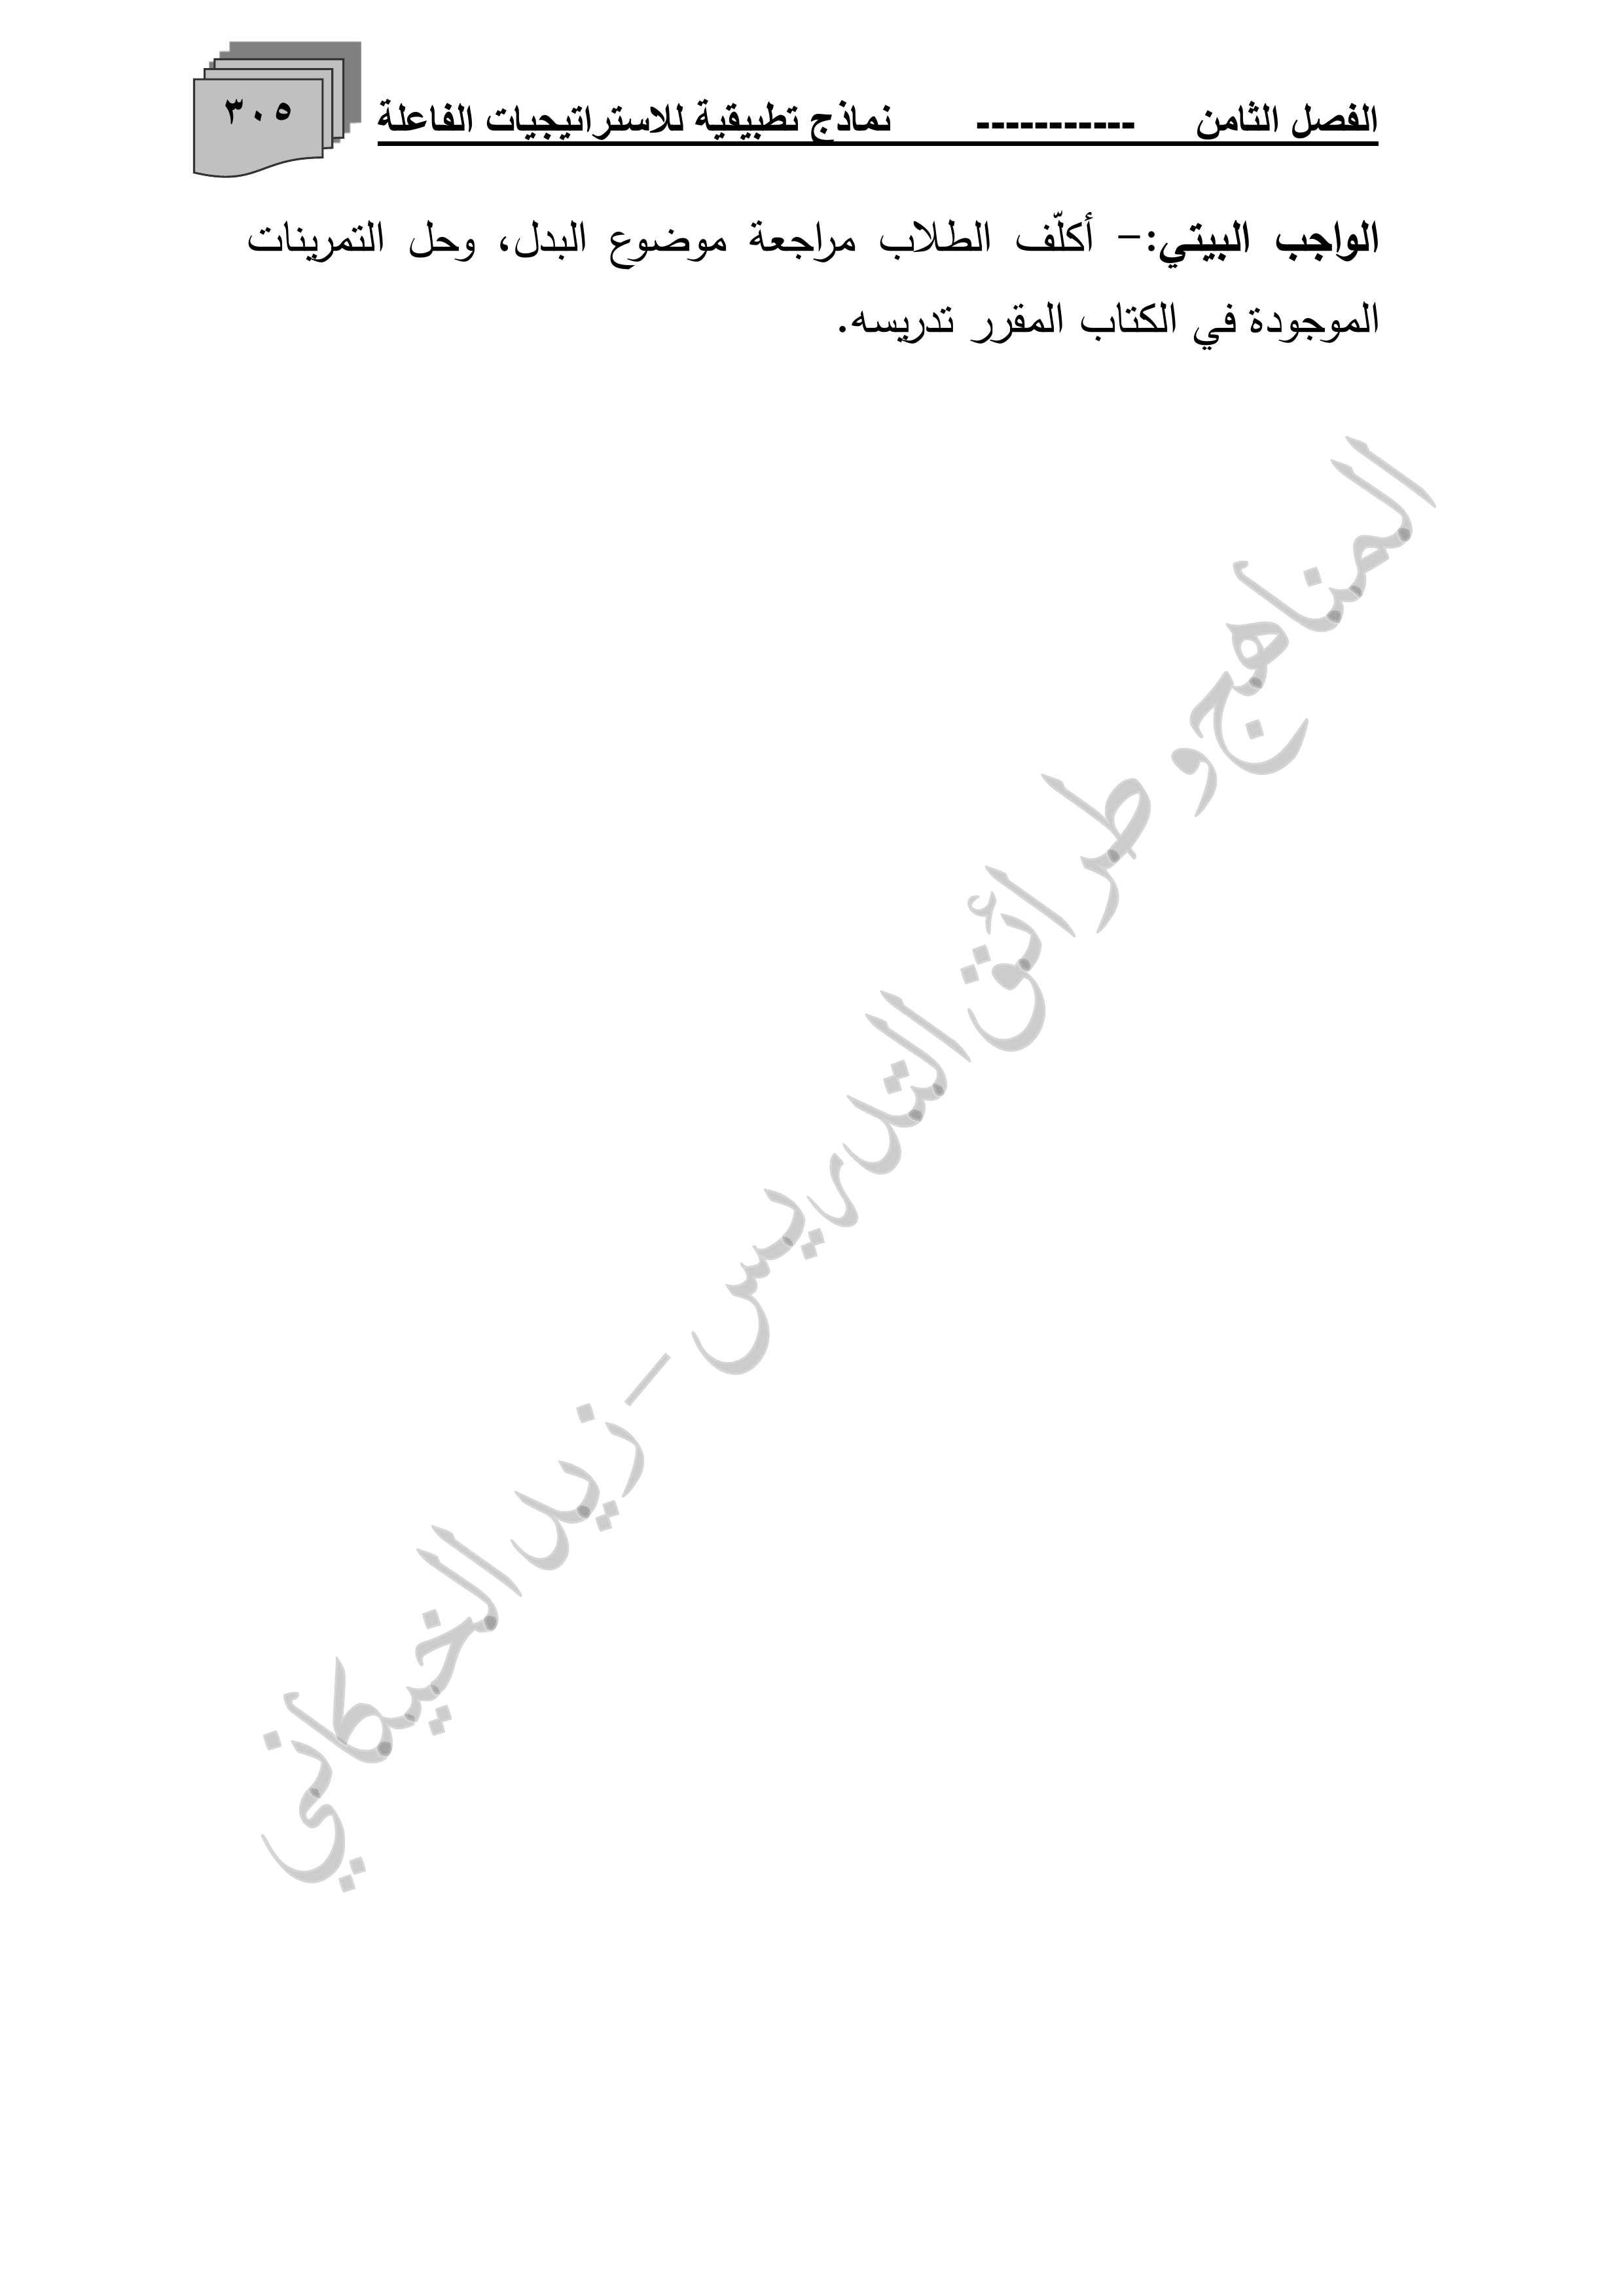 الفصل الثامن ----------- نماذج تطبيقية للاستراتيجيات الفاعلة
٣٠٥
الواجب البيتي:- أكلّف الطلاب مراجعة موضوع البدل، وحل التمرينات
الموجودة في الكتاب المقرر تدريسه.
المناهج و طرائق التدريس - زيد الخيكاني